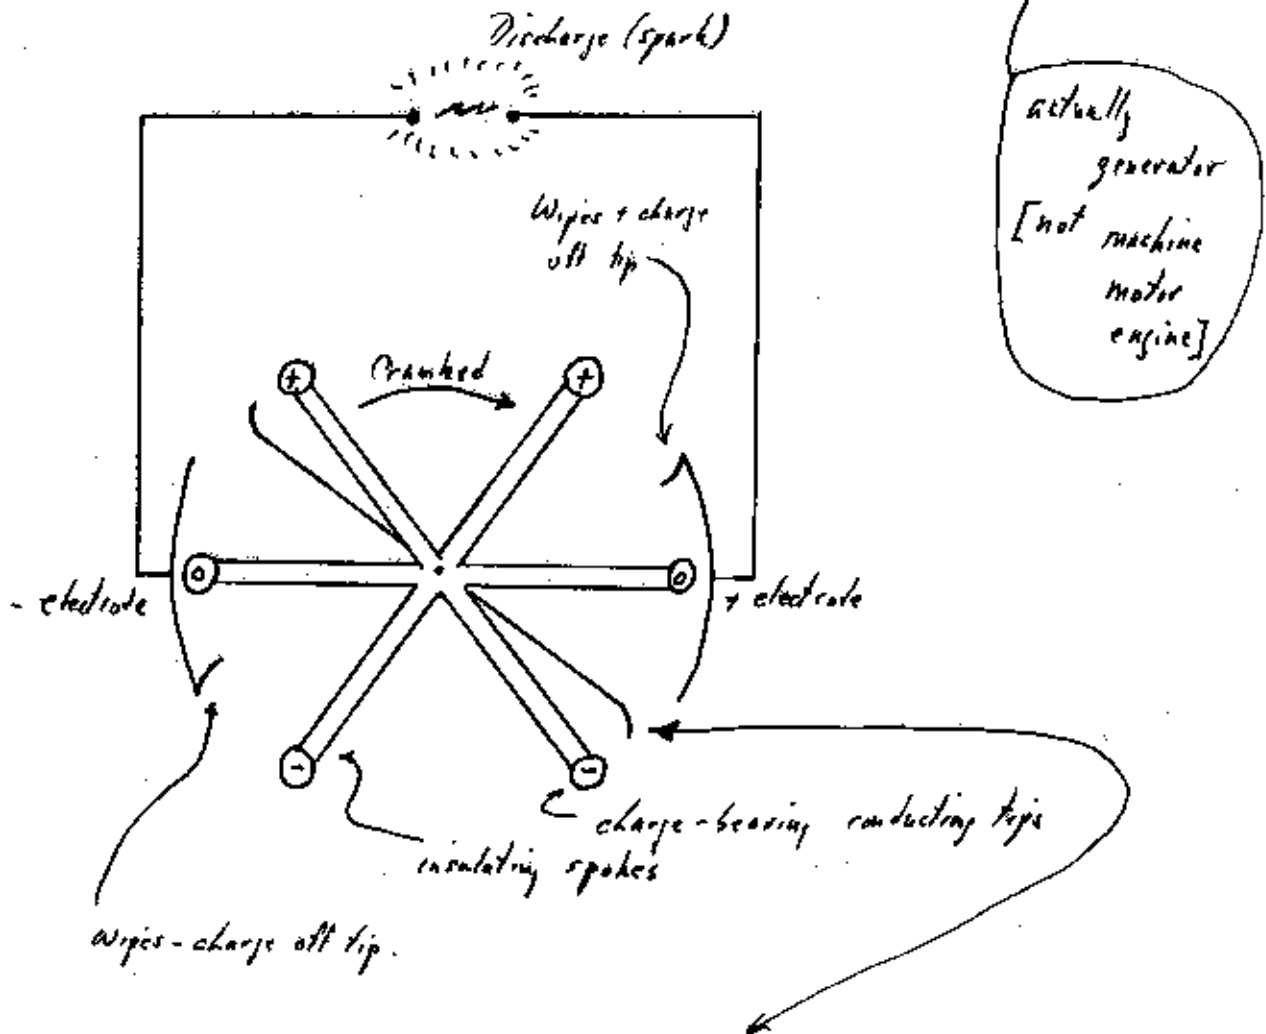 Discharge (spark)
actually
generator
[not machine
motor
engine]
Wipes + charge
off tip
Cranked
+
+
o
o
- electrode
+ electrode
-
-
charge-bearing conducting tips
insulating spokes
wipes - charge off tip.